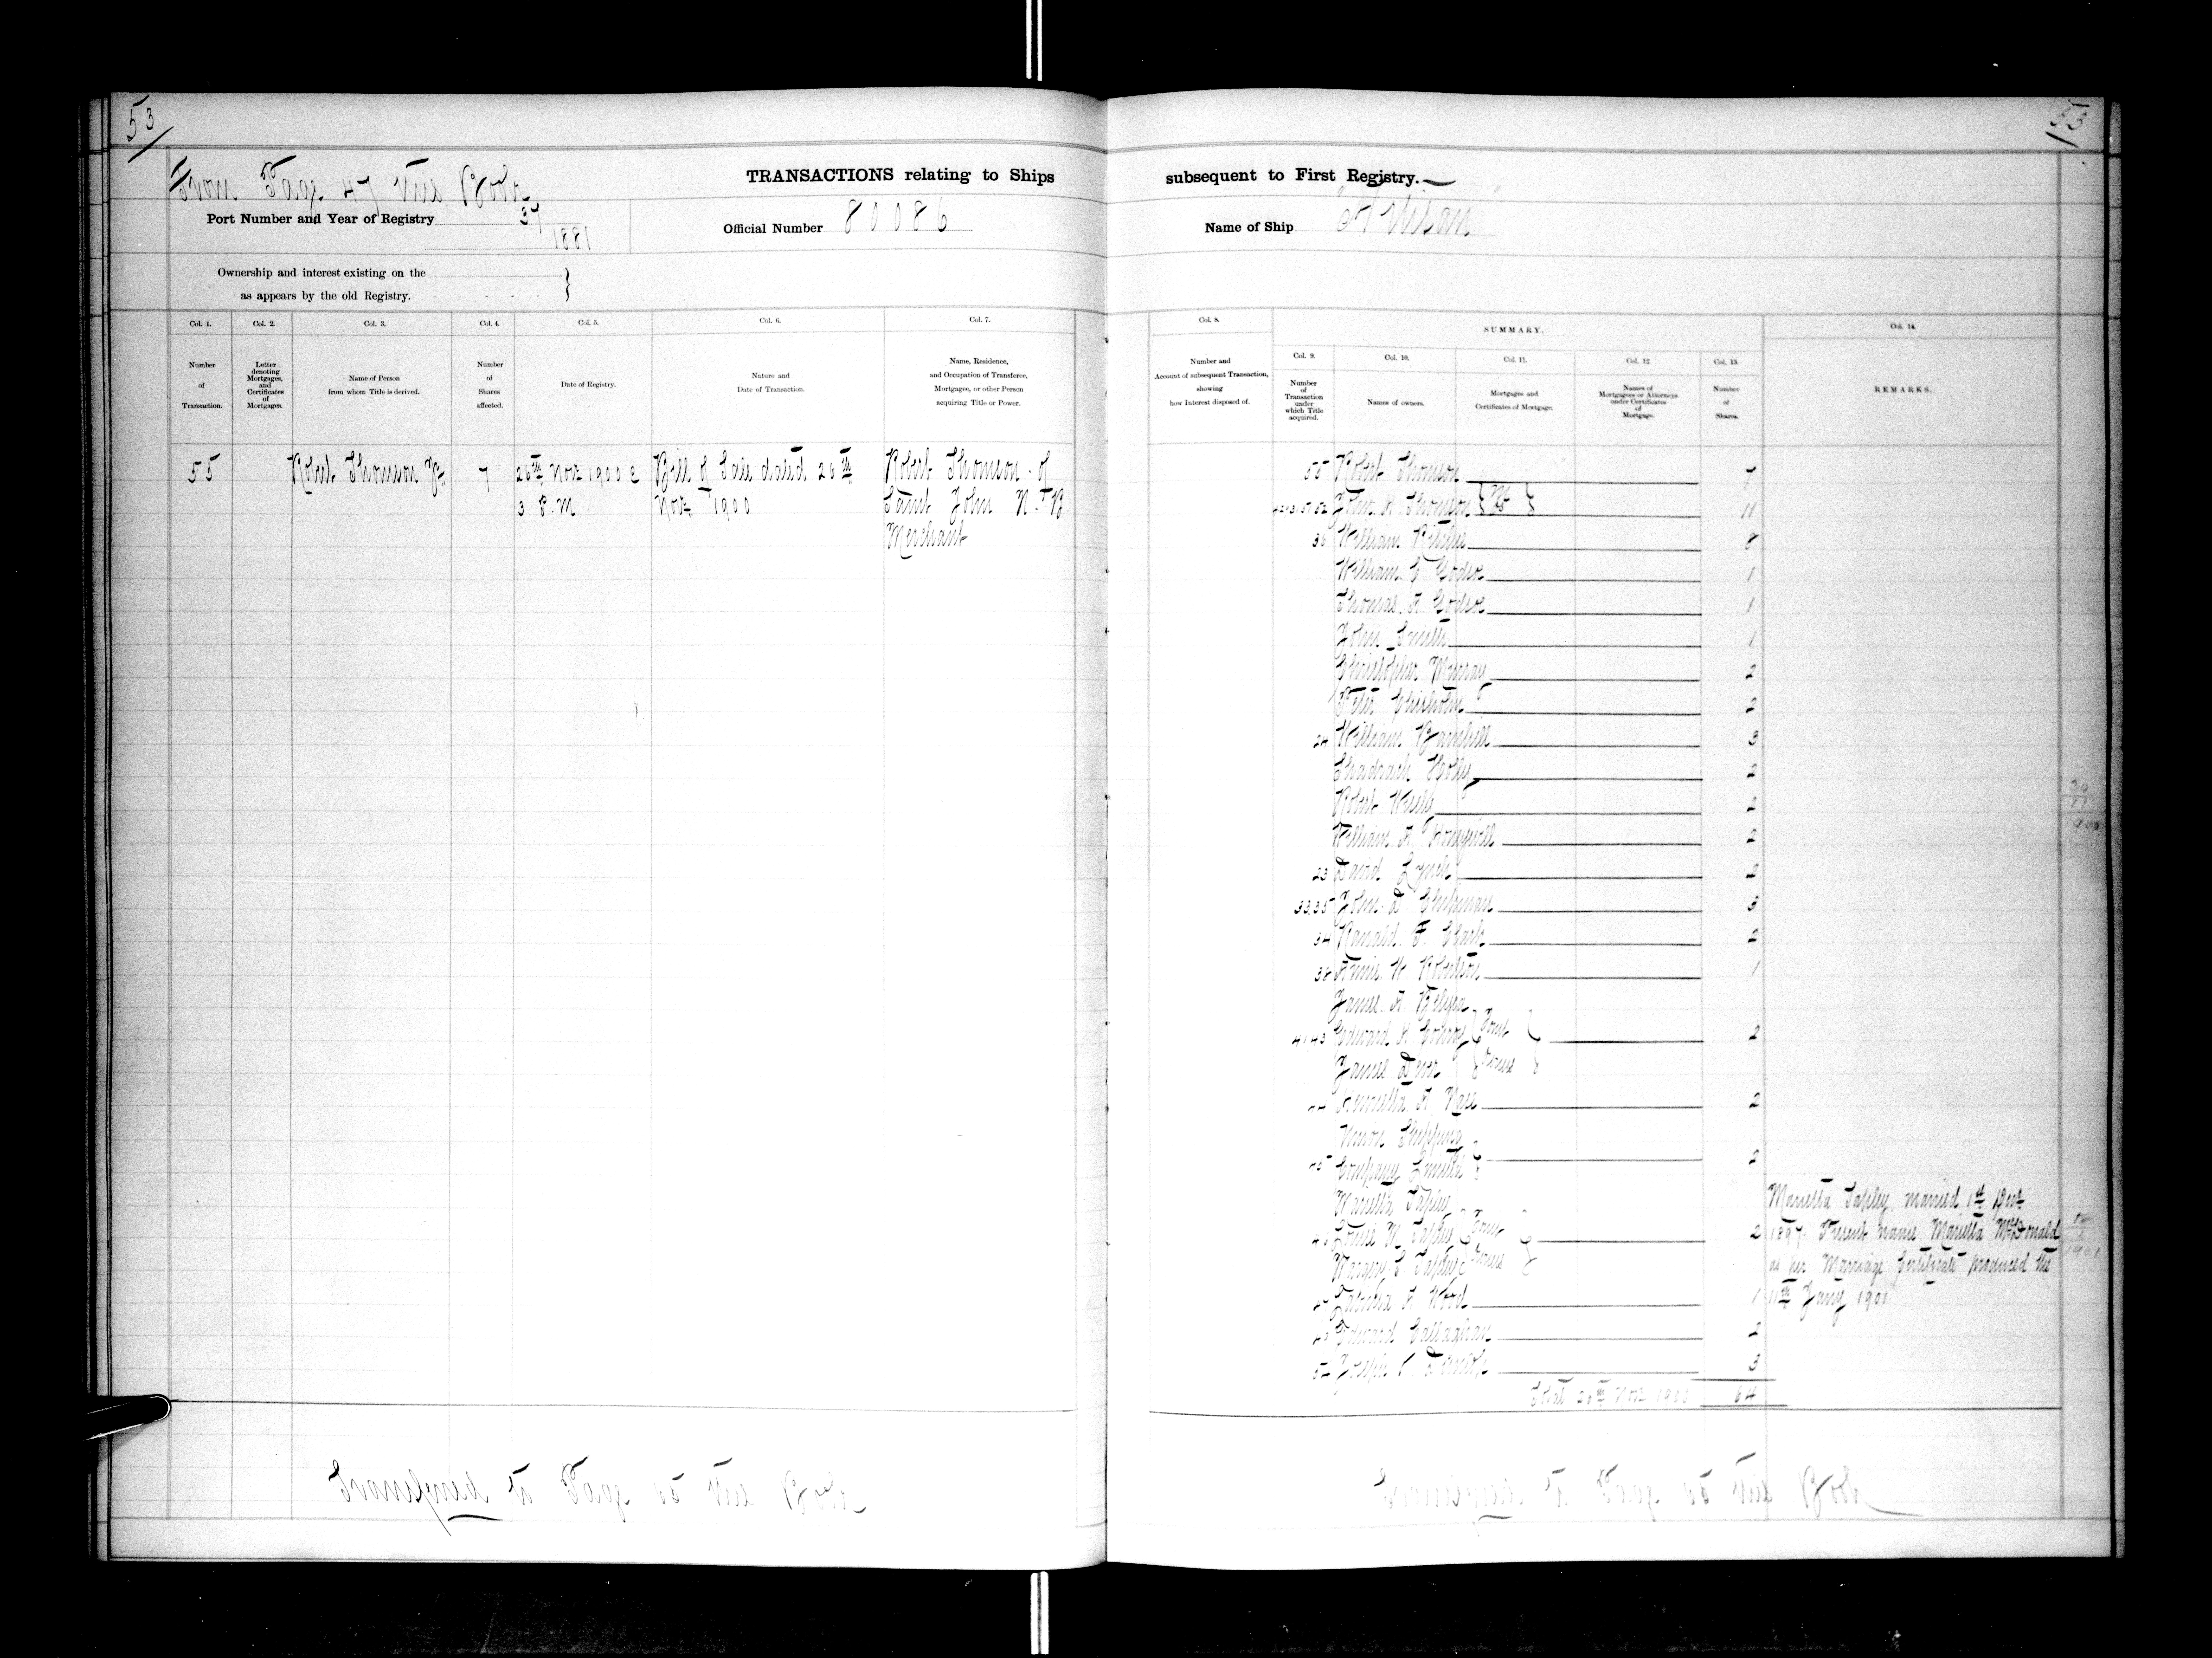 53
53
From Page 47 this Book
TRANSACTIONS relating to Ships subsequent to First Registry.
Port Number and Year of Registry 37
1881
Official Number 80086
Name of Ship
Ownership and interest existing on the
as appears by the old Registry.
Col. 1.
Col. 2.
Col. 3.
Col. 4.
Col. 5.
Col. 6.
Col. 7.
Col. 8.
SUMMARY.
Col. 14.
Col. 9.
Col. 10.
Col. 11.
Col. 12.
Col. 13.
Number
of
Transaction.
Letter
denoting
Mortgages,
and
Certificates
of
Mortgages.
Name of Person
from whom Title is derived.
Number
of
Shares
affected.
Date of Registry.
Nature and
Date of Transaction.
Name, Residence,
and Occupation of Transferee,
Mortgagee, or other Person
acquiring Title or Power.
Number and
Account of subsequent Transaction,
showing
how Interest disposed of.
Number
of
Transaction
under
which Title
acquired.
Names of owners.
Mortgages and
Certificates of Mortgage.
Names of
Mortgagees or Attorneys
under Certificates
of
Mortgage.
Number
of
Shares.
REMARKS.
55 Robert Thomson Jr 7 26th Nov 1900 @ Bill of Sale dated 26th Robert Thomson of
3 P.M Nov 1900 Saint John N.B.
Merchant
55 Robert Thomson 7
John H. Thomson 11
36 William Ritchie 8
William E Godsoe 1
Thomas A Godsoe 1
John Smith 1
Christopher Murray 2
Peter Chisholm 2
24 William Barnhill 3
Shadrach Holly 2
Robert 2
William A 2
23 David Lynch 2
33,35 John D Chipman 3
34 Ranald F. Clark 2
38 Annie W Robertson 1
James A Belyea
41,43 Edward Joint 2
James Owners
Henrietta A Vail 2
Union Shipping
Company Limited 2
Mariella Tapley
Tapley Joint 2
Margery Tapley Owners
Wood 1
Edward Callaghan 2
Joseph 3
Total 26th Nov 1900 64
30
11
1900
Mariella Tapley, married 1st
1897. Present name Mariella McDonald
as per Marriage Certificate produced the
11th Jany 1901
18
1
1901
Transferred to Page this Book
Transferred to Page this Book